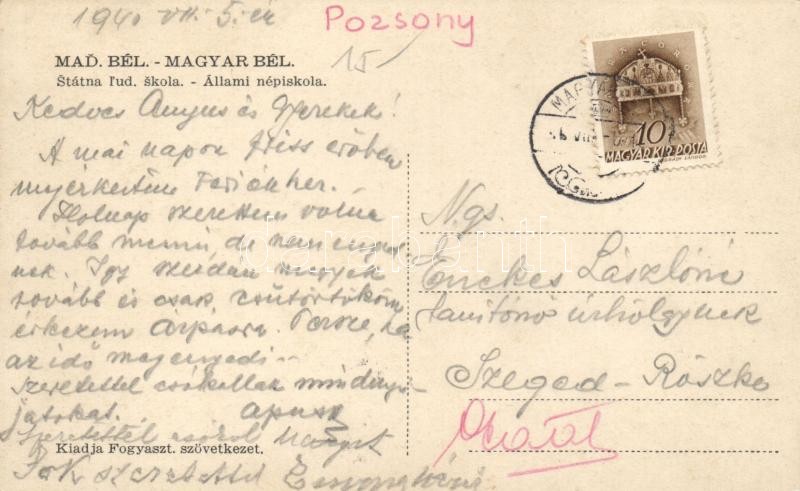 1940 VII. 5.én
Pozsony
15
MAĎ. BÉL. - MAGYAR BÉL.
Štátna ľud. škola. - Állami népiskola.
Kedves Anyus és Gyerekek!
A mai napon friss erőben
megérkeztem
Holnap szerettem volna
tovább menni de nem enged
nek. Így szerdán megyek
tovább és csak csütörtökön
érkezem Persze, ha
az idő megengedi.-
Szeretettel csókollak mindnyá
jatokat. apus
Szeretettel csókol Margit
Sok szeretettel
Kiadja Fogyaszt. szövetkezet.
10
MAGYAR KIR. POSTA
Ngs.
Lászlóné
tanítónő úrhölgynek
Szeged - Röszke
darabanth